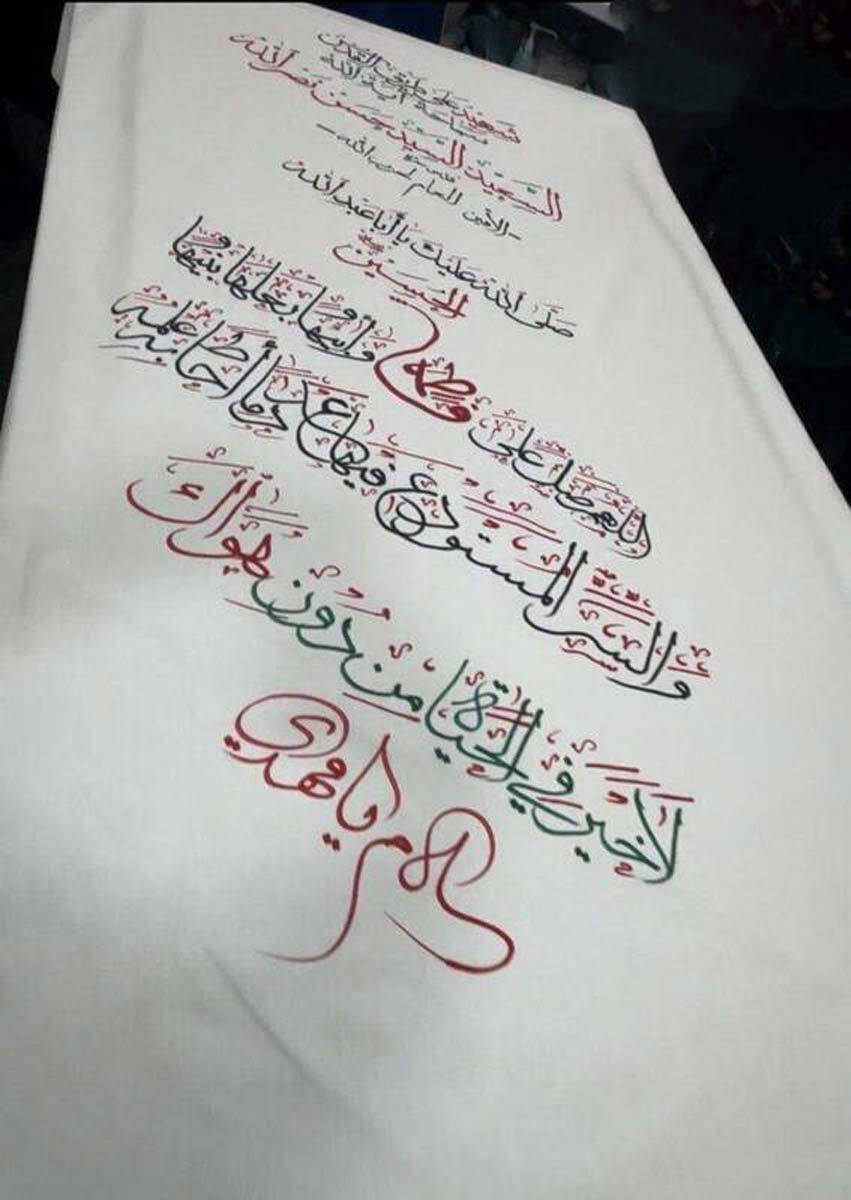 شهيد على طريق القدس
سماحة آية الله
السعيد السيد حسن نصر الله
- الأمين العام لحزب الله -
صلى الله عليك يا أبا عبد الله
الحسين
اللهم صل على فاطمة وأبيها وبعلها وبنيها
والسر المستودع فيها عدد ما أحاط به علمك
لا خير في الحياة من دون هواك
سلام يا مهدي